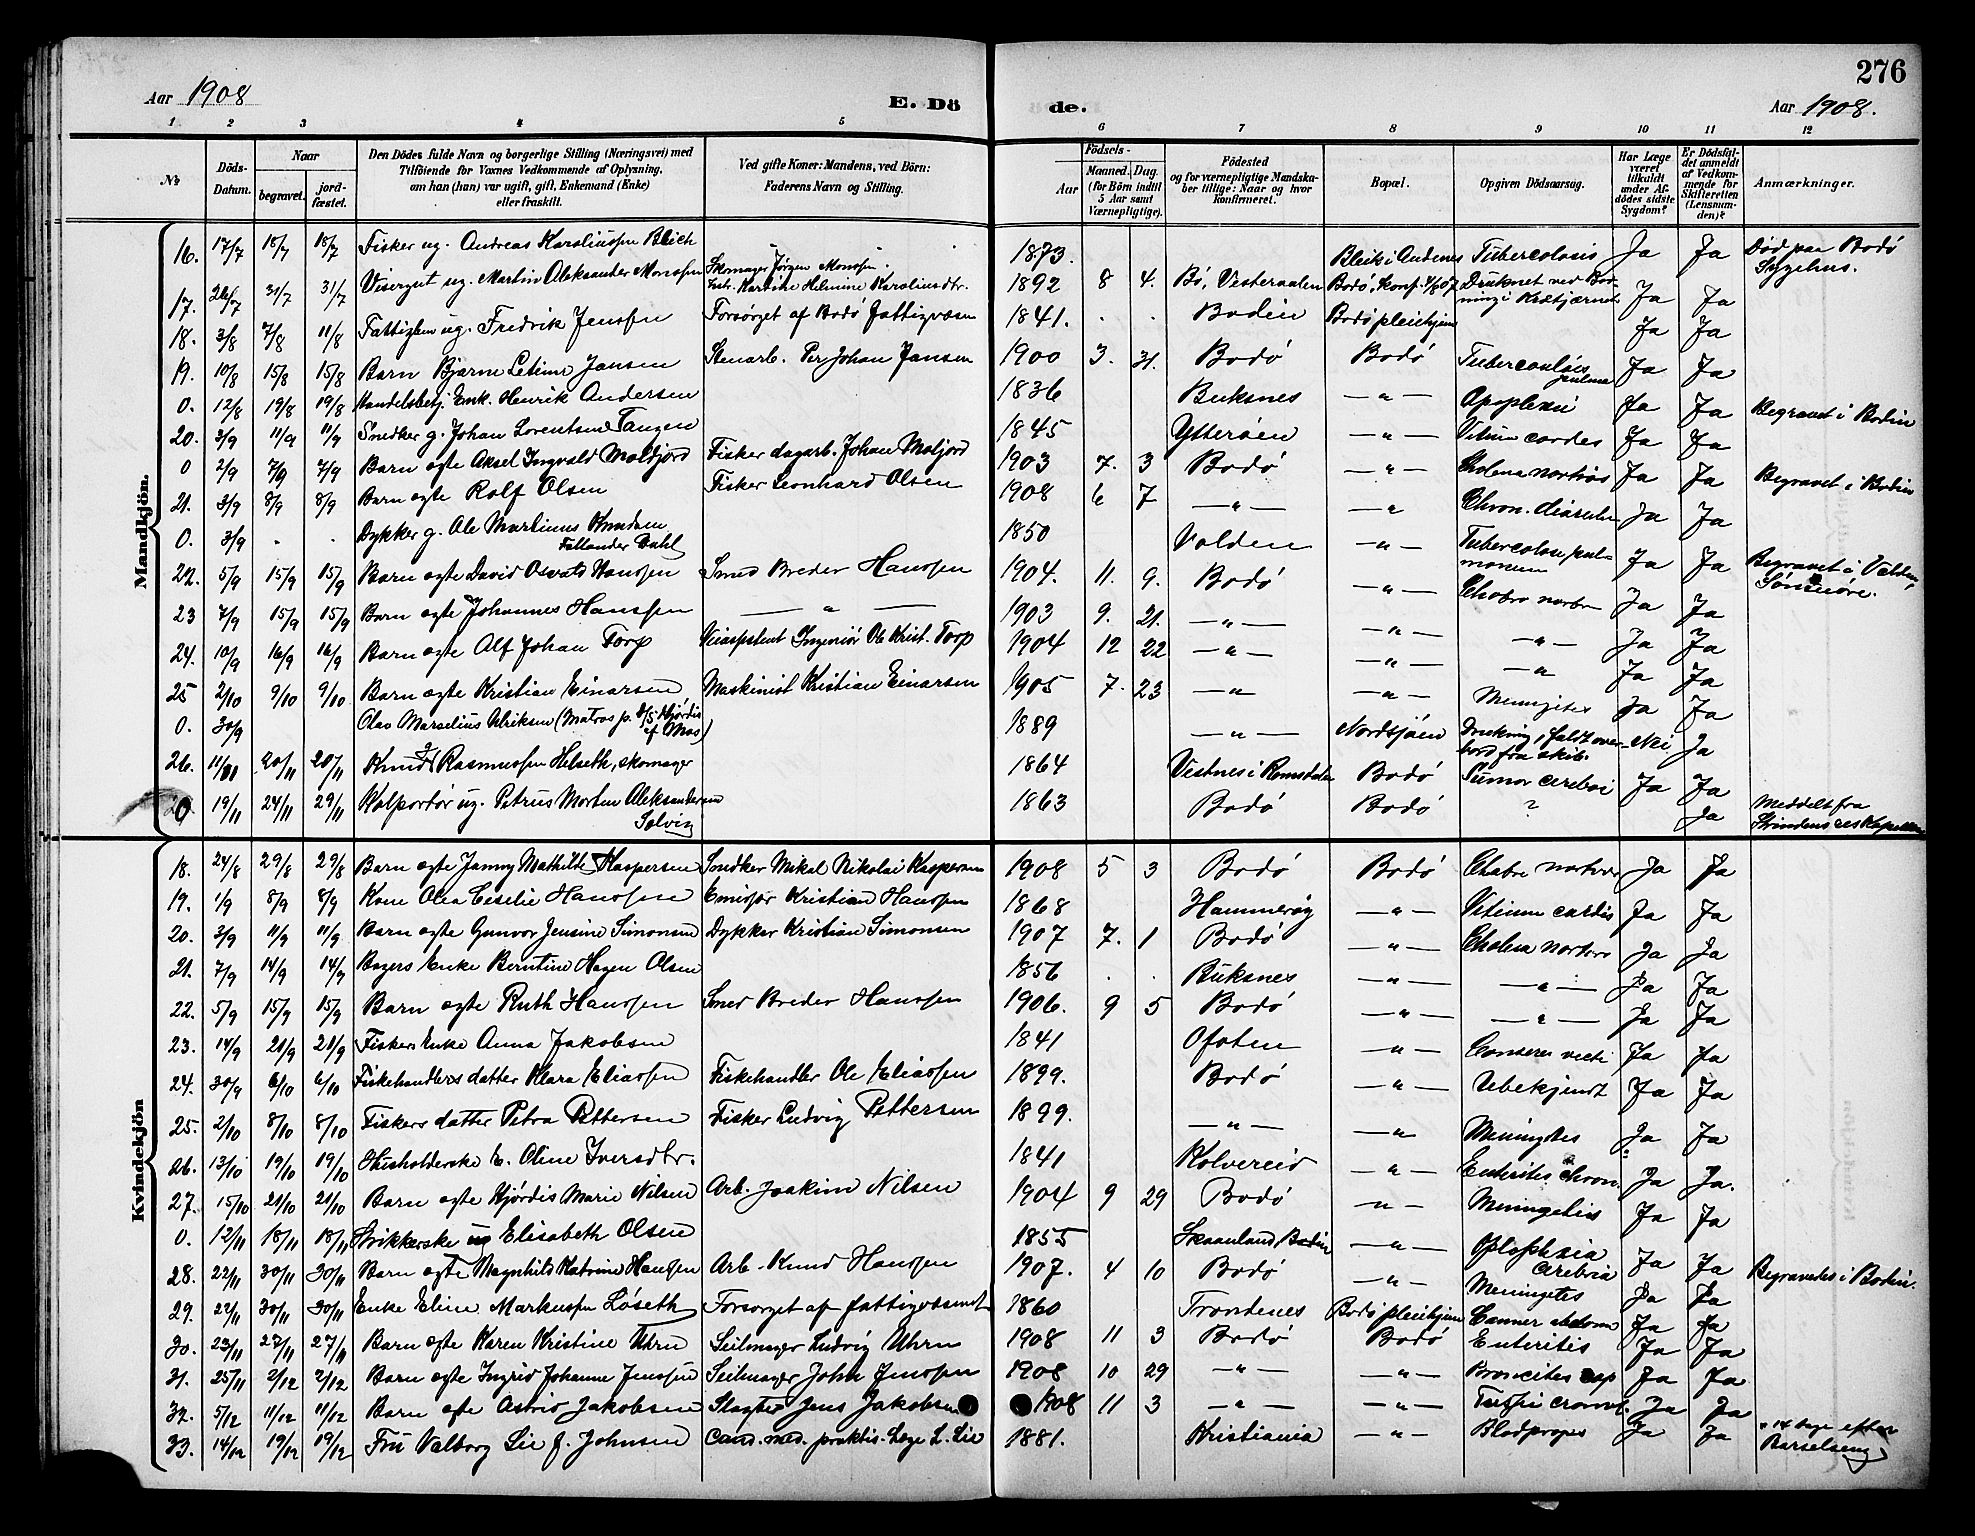 276
Aar 1908
E. Dö
de.
Aar 1908.
1 2 3 4 5 6 7 8 9 10 11 12
№
Döds-Datum.
Naar
begravet.
jord-fæstet.
Den Dödes fulde Navn og borgerlige Stilling (Næringsvei) med Tilföiende for Voxnes Vedkommende af Oplysning, om han (hun) var ugift, gift, Enkemand (Enke) eller fraskilt.
Ved gifte Koner: Mandens, ved Börn: Faderens Navn og Stilling.
Födsels-
Aar
Maaned. Dag.
(for Börn indtil 5 Aar samt Værnepligtige).
Födested og for værnepligtige Mandskaber tillige: Naar og hvor konfirmeret.
Bopæl.
Opgiven Dödsaarsag.
Har Læge været tilkaldt under Afdödes sidste Sygdom?
Er Dödsfaldet anmeldt af Vedkommende for Skifteretten (Lensmanden)?
Anmærkninger.
Mandkjön.
16. 17/7 18/7 18/7 Fisker ug. Andreas Karoliussen Bleich 1873. Bleik i Andenes Tuberculosis Ja Ja Død paa Bodö Sygehus.
17. 26/7 31/7 31/7 Visergut ug. Martin Aleksander Monssen Skomager Jørgen Monssen. Kartine Helmine Karoliusdtr. 1892 8 4. Bø, Vesteraalen Bodö, konf. Druknet ved Ja Ja
18. 3/8 7/8 11/8 Fattiglem ug. Fredrik Jenssen Forsørget af Bodö Fattigvæsen 1841. Bodin Bodö pleiehjem Ja Ja
19. 10/8 15/8 15/8 Barn Bjarne Jansen Stenarb. Per Johan Jansen 1900 3. 31. Bodö Bodö Tuberculosis Ja Ja
0. 12/8 19/8 19/8 Handelsbetj. Enk. Henrik Andersen 1836 Buksnes — " — Apoplexii Ja Ja Begravet i Bodin
20. 3/9 11/9 11/9 Snedker g. Johan Lorentsen Tangen 1845 Ytterøen — " — Vitium cordes Ja Ja
0 2/9 7/9 7/9 Barn egte Aksel Ingvald Moldjord Fisker dagarb. Johan Moljord 1903 7. 3 Bodö — " — Ja Ja Begravet i Bodin
21. 3/9 8/9 8/9 Barn egte Rolf Olsen Fisker Leonhard Olsen 1908 6 7 — " — — " Chron. Ja Ja
0. 3/9 . . Dykker g. Ole Martinus Knudsen Dahl 1850 Volden — " — Tubercolosi pulmonum Ja Ja Begravet i Volden, Søndmøre.
22. 5/9 15/9 15/9 Barn egte David Osvald Hanssen Smed Breder Hanssen 1904. 11. 9. Bodö — " — Ja Ja
23 7/9 15/9 15/9 Barn egte Johannes Hanssen — " — 1903 9. 21. — " — — " — — " — Ja Ja
24. 10/9 16/9 16/9 Barn egte Alf Johan Torp Ingeniør Ole Krist. Torp 1904 12 22 — " — — " — — " Ja Ja
25 2/10 9/10 9/10 Barn egte Kristian Einarsen Maskinist Kristian Einarsen 1905 7. 23 — " — " — Meningites Ja Ja
0. 30/9 Olav Marselius Ulriksen (Matros p. D/S Hjördis af Mos) 1889 — " — Nordsjøen Drukning, faldt overbord fra skib. Nei Ja
26. 11/11 20/11 20/11 Knud Rasmussen Helseth, skomager 1864 Vestnes i Romsdalen Bodö Tumor cerebri Ja Ja
0. 19/11 24/11 29/11 Kolportør ug. Petrus Morten Aleksandersen Solvig 1863 Bodö Bodö ? Ja Meddelt fra Strindens res Kapellan
Kvindekjön
18. 24/8 29/8 29/8 Barn egte Janny Mathilde Kaspersen Snedker Mikal Nikolai Kaspersen 1908 5 3 Bodö Bodö Ja Ja
19. 1/9 8/9 8/9 Kone Olea Cecilie Hanssen Emissær Kristian Hanssen 1868 Hammerøy — " — Vitium cardis Ja Ja
20. 3/9 11/9 11/9 Barn egte Gunvor Jensine Simonsen Dykker Kristian Simonsen 1907 7. 1 Bodö — " — Ja Ja
21. 7/9 14/9 14/9 Enke Berntine Hagen Olsen 1856 . . Buksnes — " — — " — Ja Ja
22. 5/9 15/9 15/9 Barn egte Ruth Hanssen Smed Breder Hanssen 1906. 9 5 Bodö — " — — " — Ja Ja
23. 14/9 21/9 21/9 Fisker Enke Anna Jakobsen 1841 Ofoten — " — Ja Ja
24. 30/9 6/10 6/10 Fiskehandlers datter Klara Eliassen Fiskehandler Ole Eliassen 1899. Bodö — " — Ubekjendt Ja Ja
25. 2/10 8/10 8/10 Fiskers datter Petra Pettersen Fisker Ludvig Pettersen 1899. — " — — " — Meningites Ja Ja
26. 13/10 19/10 19/10 Husholderske E. Oline Iversdtr. 1841 Kolvereid — " — Enterites chron. Ja Ja.
27. 15/10 21/10 21/10 Barn egte Hjördis Marie Nilsen Arb. Joakim Nilsen 1904 9 29 Bodö — " — Meningetis Ja Ja
0. 12/11 18/11 18/11 Strikkerske ug Elisabeth Olsen 1855 Skaanland Bodin — " — cerebria Ja Ja Begravedes i Bodin.
28. 22/11 30/11 30/11 Barn egte Magnhild Katrine Hanssen Arb. Knud Hanssen 1907. 4 10 Bodö — " — Meningetis Ja Ja
29. 22/11 30/11 30/11 Enke Eline Markussen Löseth Forsørget af fattigvæsenet 1860 Trondenes Bodö pleiehjem Cancer abdom Ja Ja
30. 23/11 27/11 27/11 Barn egte Karen Kristine Uhrn Seilmager Ludvig Uhrn 1908 11 3 Bodö Bodö Enteritis Ja Ja
31. 25/11 2/12 2/12 Barn egte Ingrid Johanne Jenssen Seilmager John Jenssen 1908 10 29 — " — — " — Broncites cap Ja Ja
32. 5/12 11/12 11/12 Barn egte Astrid Jakobsen Slagter Jens Jakobsen 1908 11 3 — " — — " — Ja Ja
33. 14/12 19/12 19/12 Fru Valborg Lie f. Johnsen Cand. med. praktis. Læge L. Lie 1881. Kristiania — " — Blodprops Ja Ja 14 dage efter Barselseng